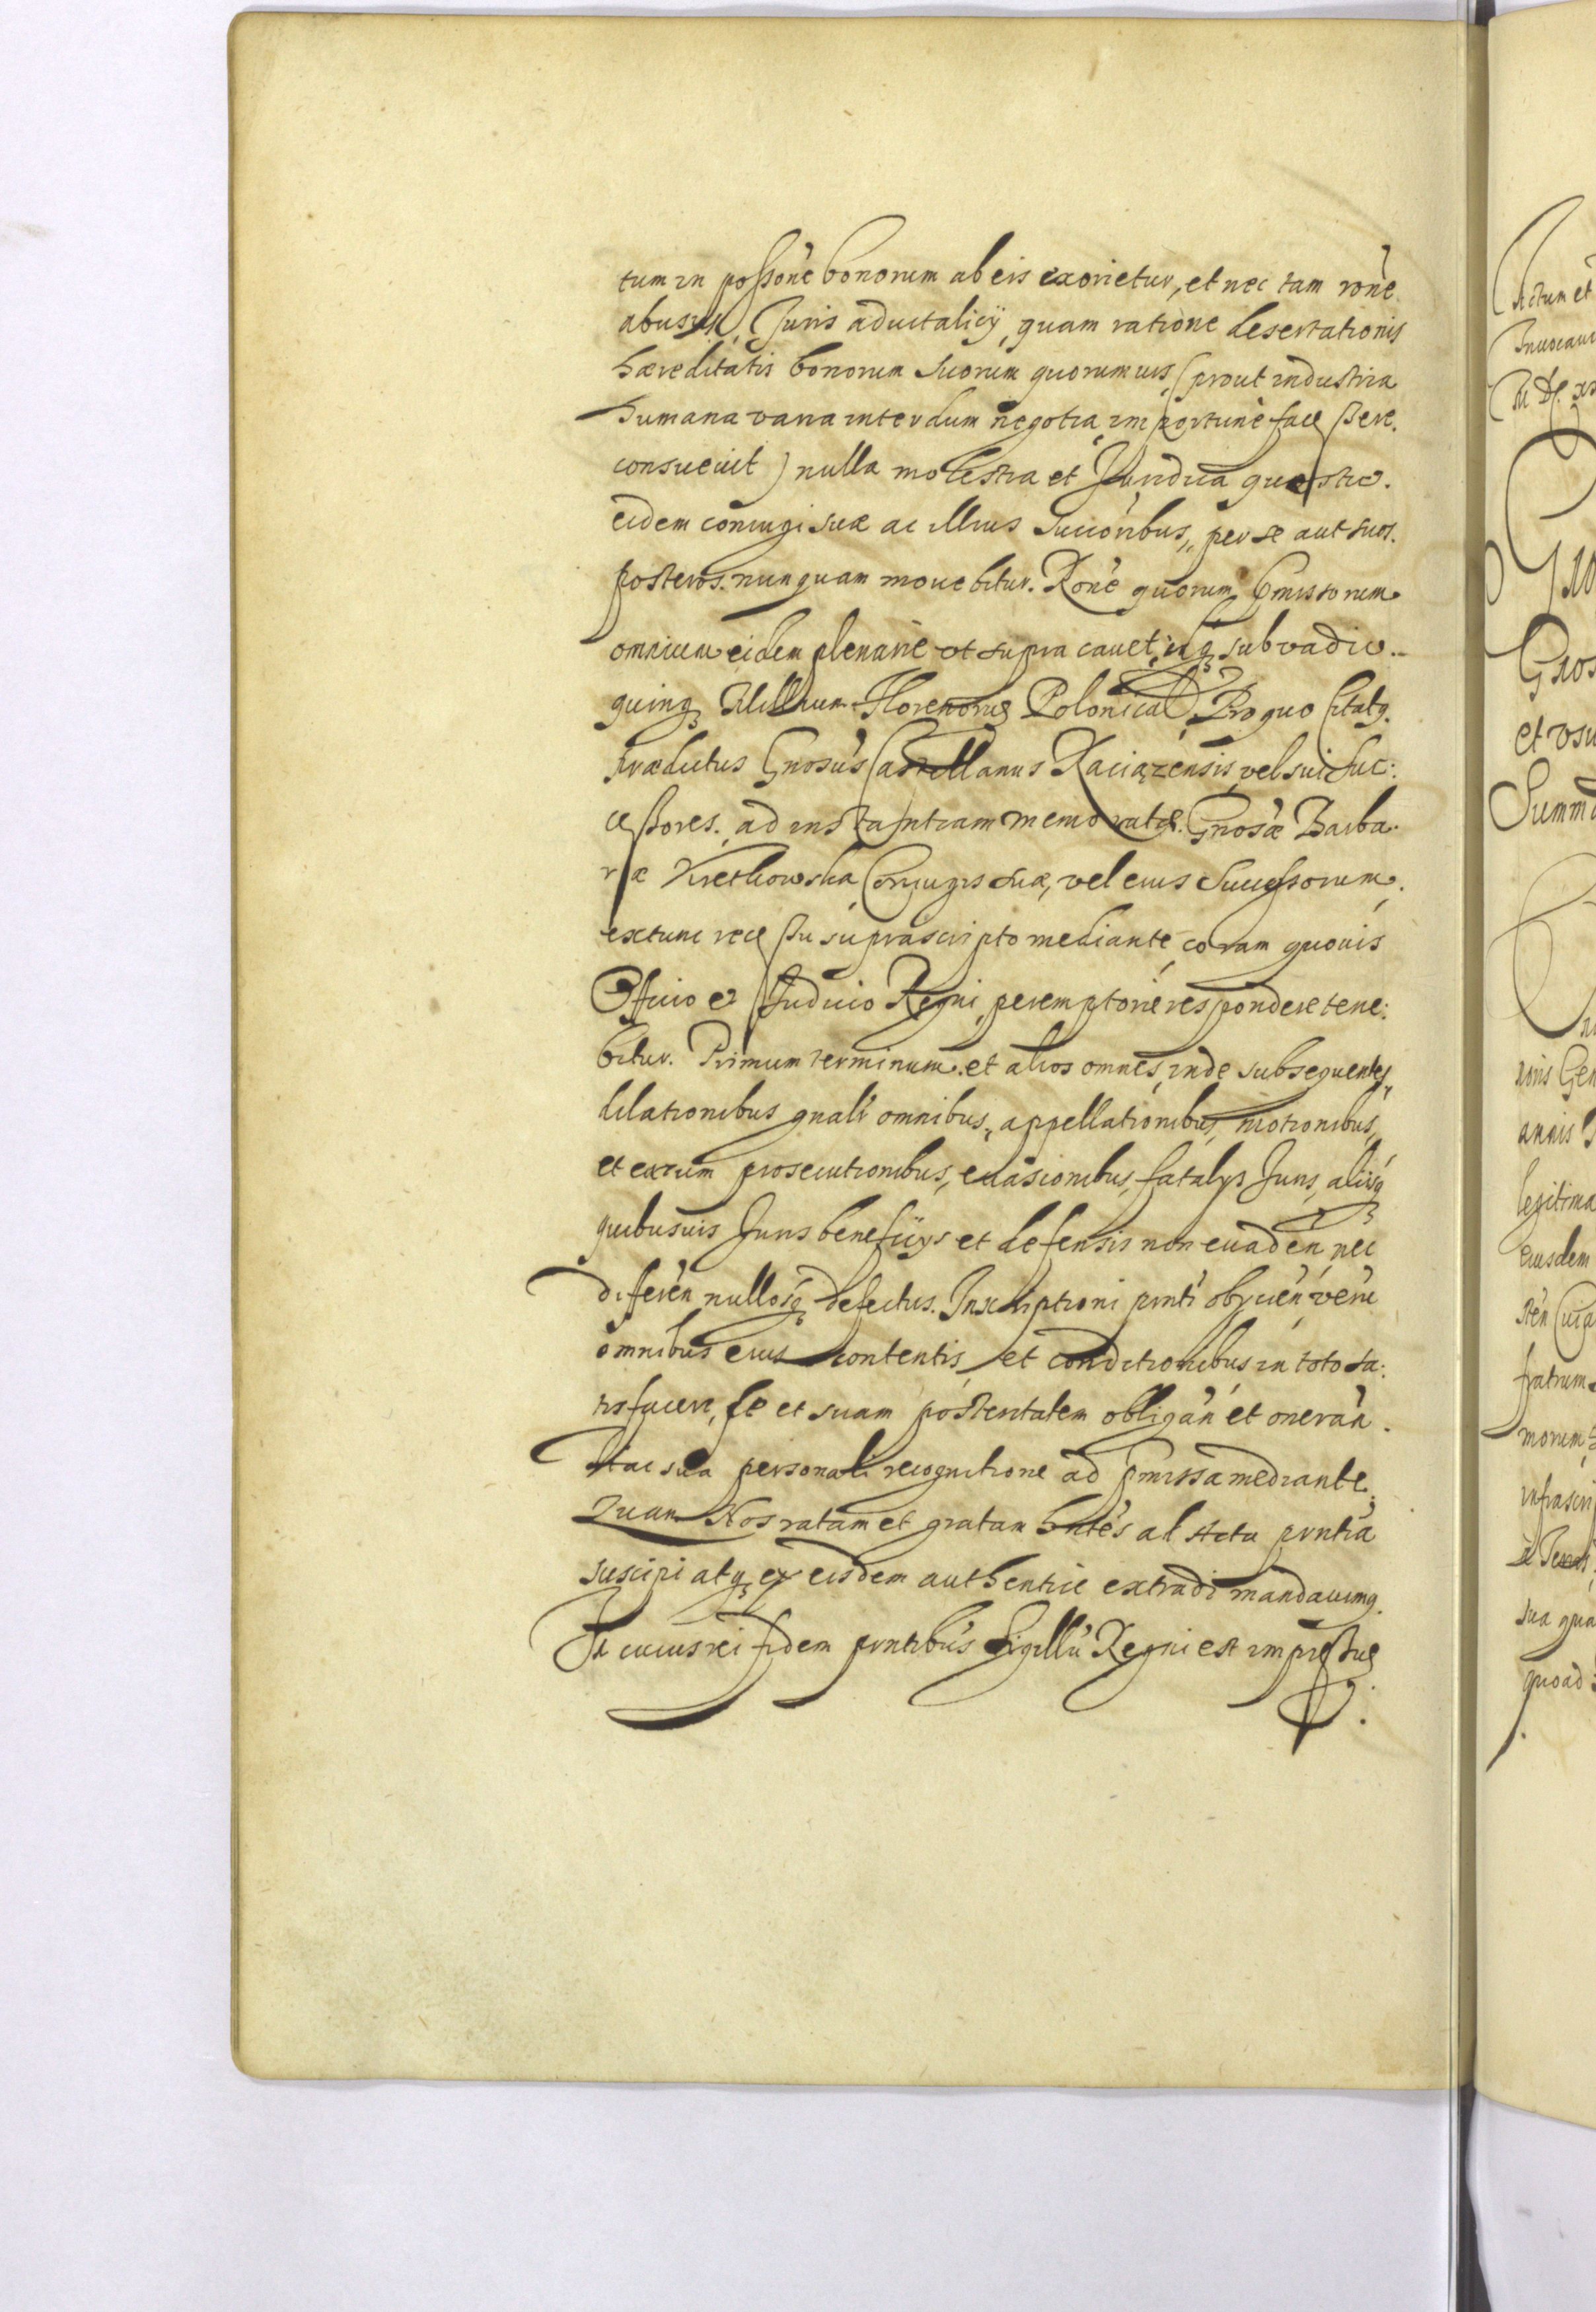 tum in possōne bonorum ab eis exorietur, et nec tam rōne
abusus, Juris aduitalicÿ, quam ratione desertationis
hæreditatis bonorum suorum quorumuis, (prout industria
humana varia interdum negotia importunè facessere
consueuit) nulla molestia et Juridica quæstio
eidem coniugi suæ ac illius succōribus, per se aut suos
posteros nunquam mouebitur. Rōne quorum p̄missorum
omnium eidem plenariè vt supra cauet, idq̨ sub vadio
quinq̨ Millium Florenorum Polonical. Pro quo citatq.
prædictus Gnosūs Castellanus Raciązensis, vel sui suc:
cessores, ad instantiam memoratæ Gnosæ Barba
ræ Kretkowska Coniugis suæ, vel eius Successorum,
extunc recessu suprascripto mediante, coram quouis
Officio et Judicio Regni, peremptoriè respondere tene:
bitur. Primum terminum et alios omnes, inde subsequentes,
dilationibus gnalī omnibus, appellationibus, motionibus,
et earum prosecutionibus, euasionibus, fatalÿs Juris, alÿsq̨
quibusuis Juris beneficÿs et defensis non euadēn, nec
diferēn nullosq̨ defectus. Inscriptioni pnti obÿciēn, vērū
omnibus eius contentis, et conditionibus in toto sa:
tisfacere, se et suam posteritatem obligān et onerān
Hac sua personali recognitione ad p̄missa mediante,
Quam Nos ratam et gratam hntēs ad Acta pnntia
suscipi atq̨ ex eisdem authentice extradi mandauimq.
In cuius rei fidem pnntibūs Sigillū Regni est impressus